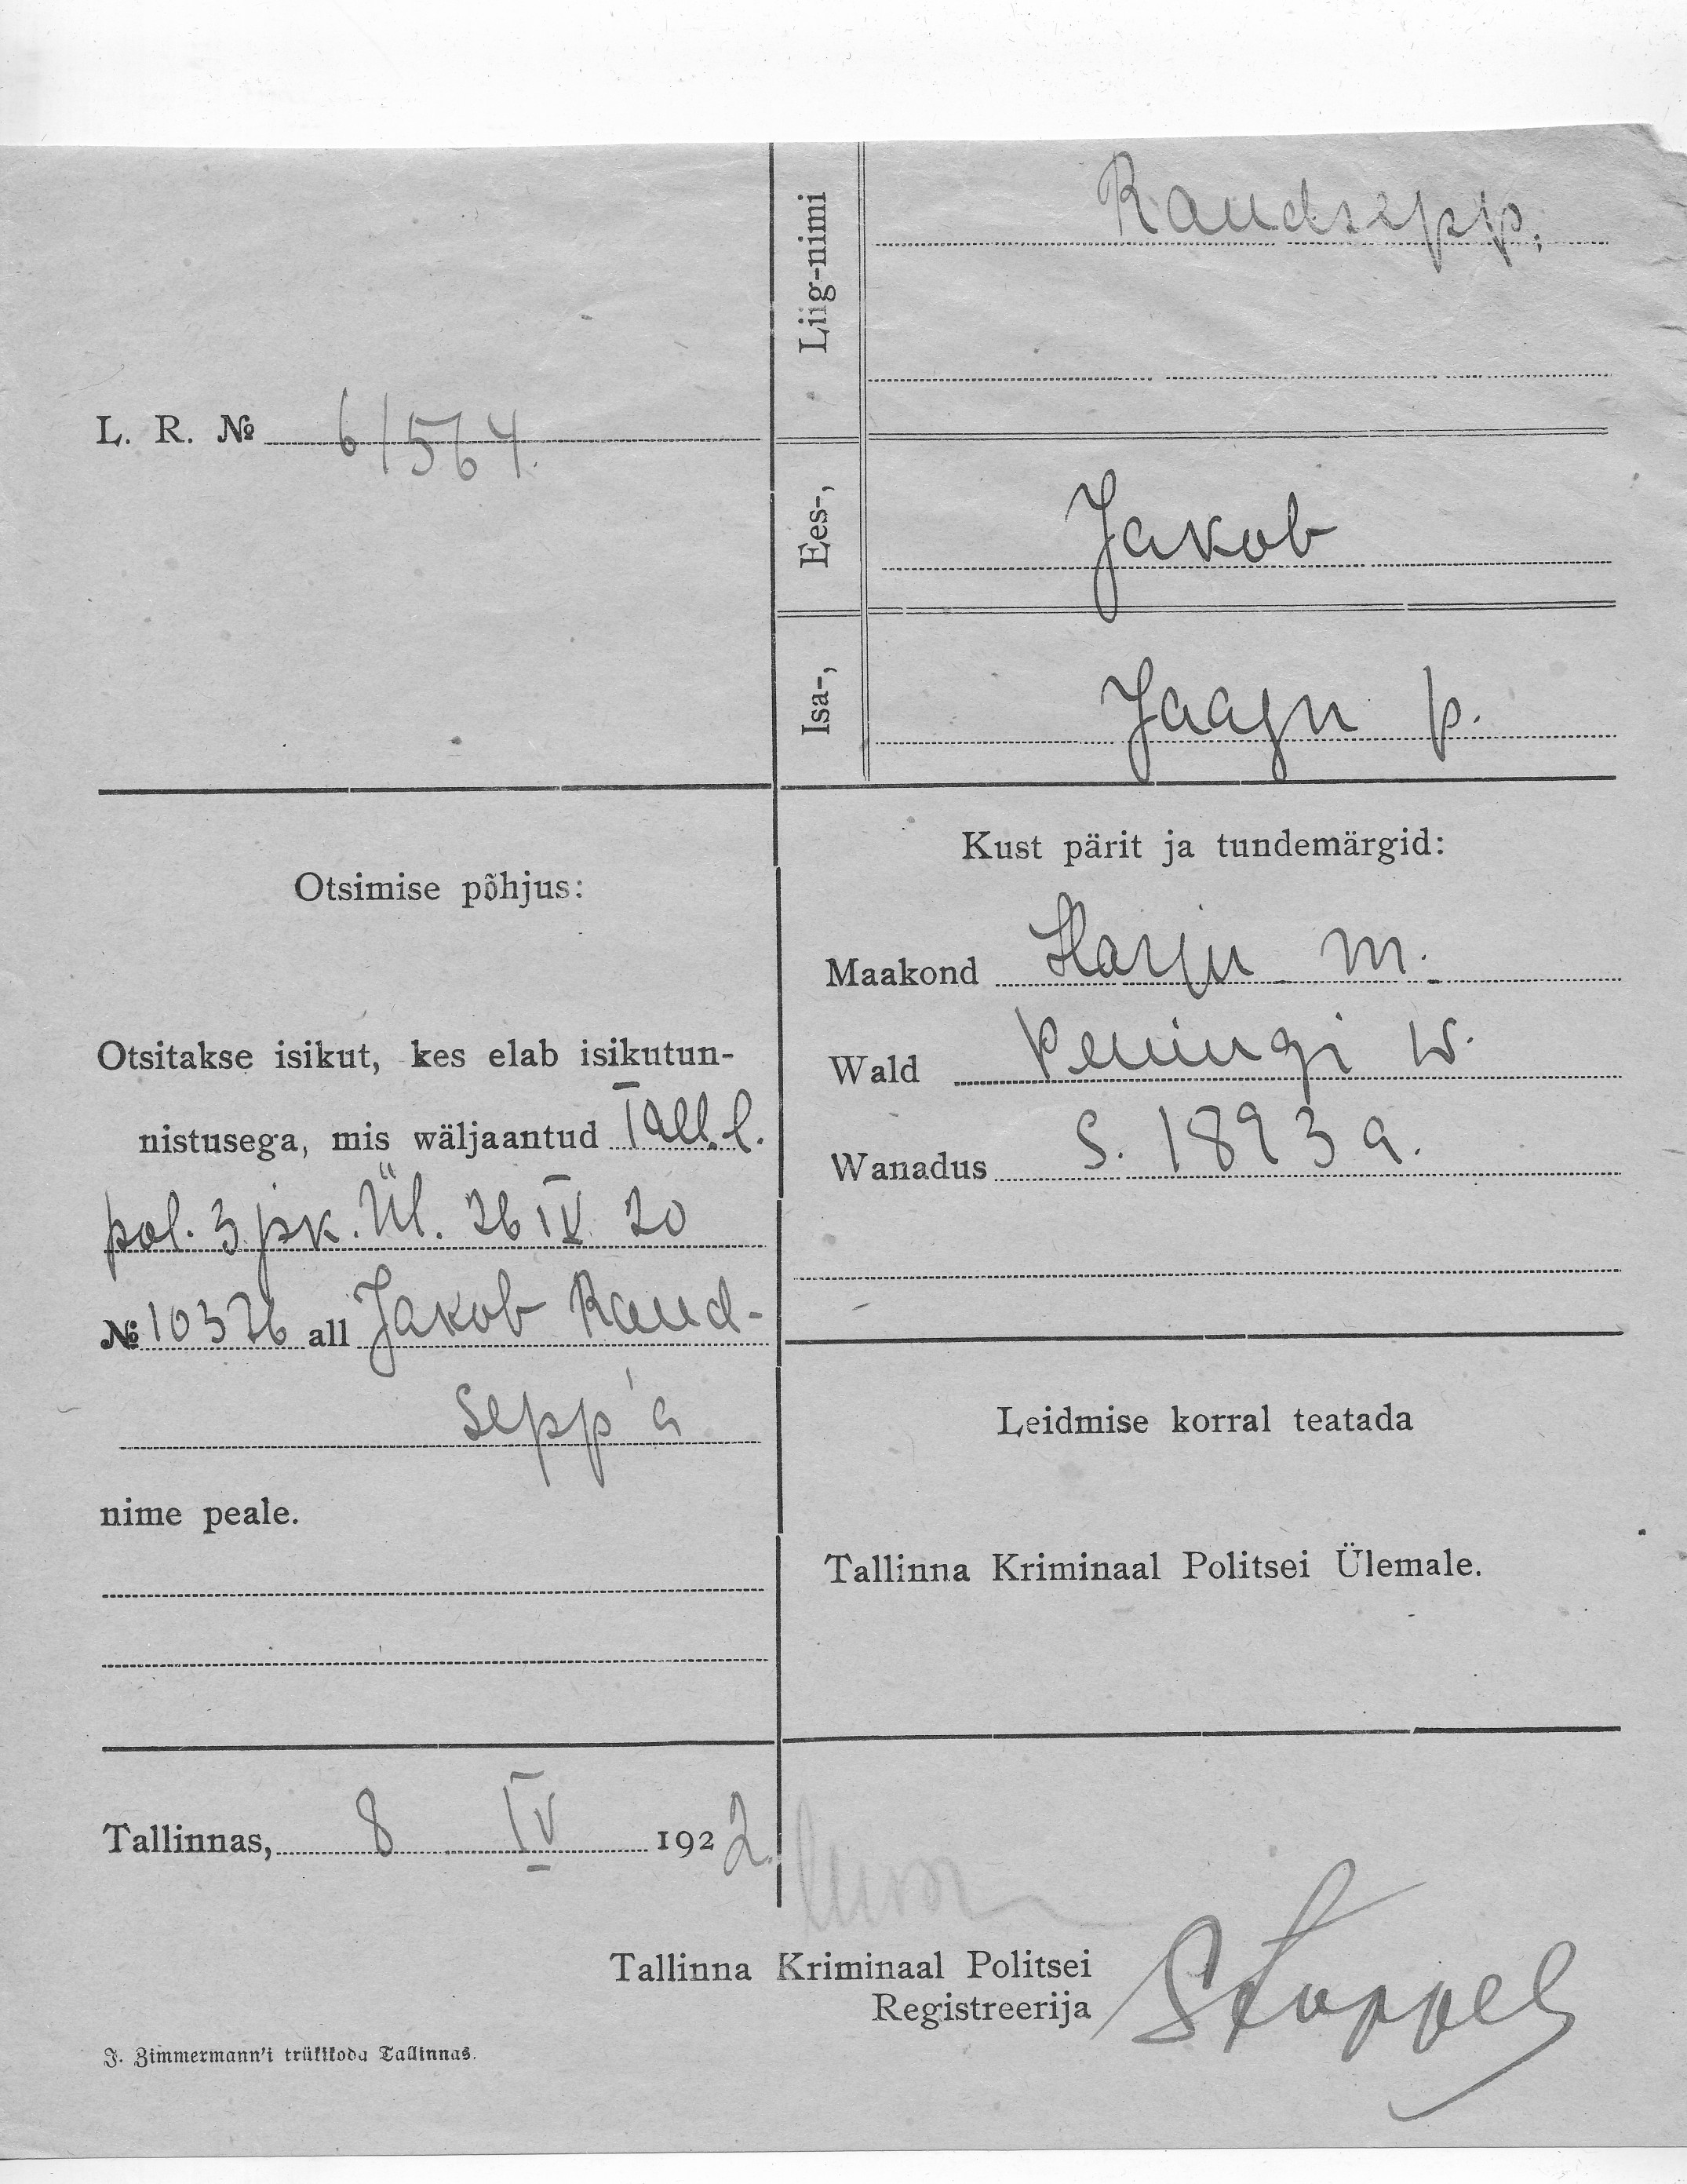 Liig-nimi Raudsepp.
L. R. № 6/564.
Ees-, Jakob
Isa-, Jaagu p.
Otsimise põhjus:
Otsitakse isikut, kes elab isikutun-
nistusega, mis wäljaantud Tall. l.
pol. 3 jsk. Ül. 26 IV 20
№ 10376 all Jakob Raud-
sepp'a
nime peale.
Kust pärit ja tundemärgid:
Maakond Harju m.
Wald Peningi w.
Wanadus S. 1893 a.
Leidmise korral teatada
Tallinna Kriminaal Politsei Ülemale.
Tallinnas, 8 IV 1922.
Tallinna Kriminaal Politsei
Registreerija Stoppel
J. Zimmermann'i trükikoda Tallinnas.